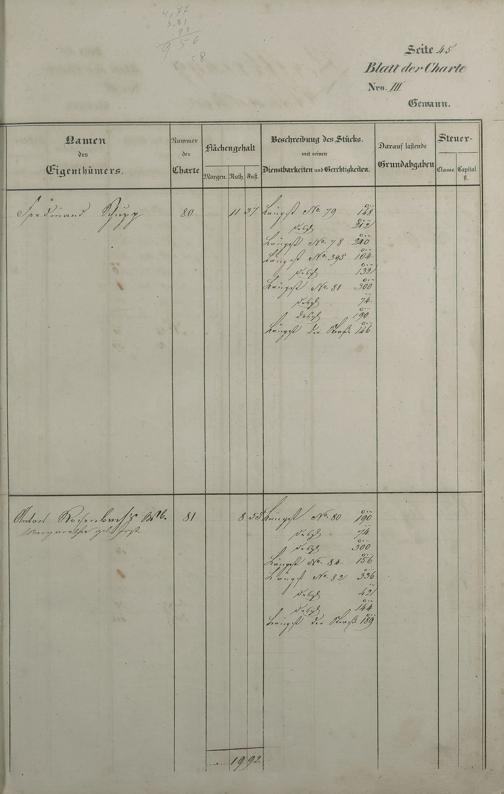 Seite 45
Blatt der Charte
Nro. III
Gewann.
Namen
des
Eigenthümers.
Nummer
der
Charte
Flächengehalt
Morgen. Ruth. Fuß.
Beschreibung des Stücks.
mit seinen
Dienstbarkeiten und Gerechtigkeiten.
Darauf lastende
Grundabgaben
Steuer-
Classe Capital
fl.
Ferdinand Schupp 80 11 37 Längst No. 79 148
desgl. 212
Längst No. 78 240
Längst No. 395 104
desgl. 132
Längst No. 81 300
desgl. 74
desgl. 190
Längst der Straß 126
Anton 81 8 55 Längst No. 80 190
desgl. 74
desgl. 300
Längst No. 84 156
Längst No. 82 336
desgl. 42
desgl. 144
Längst der Straß 189
19 92